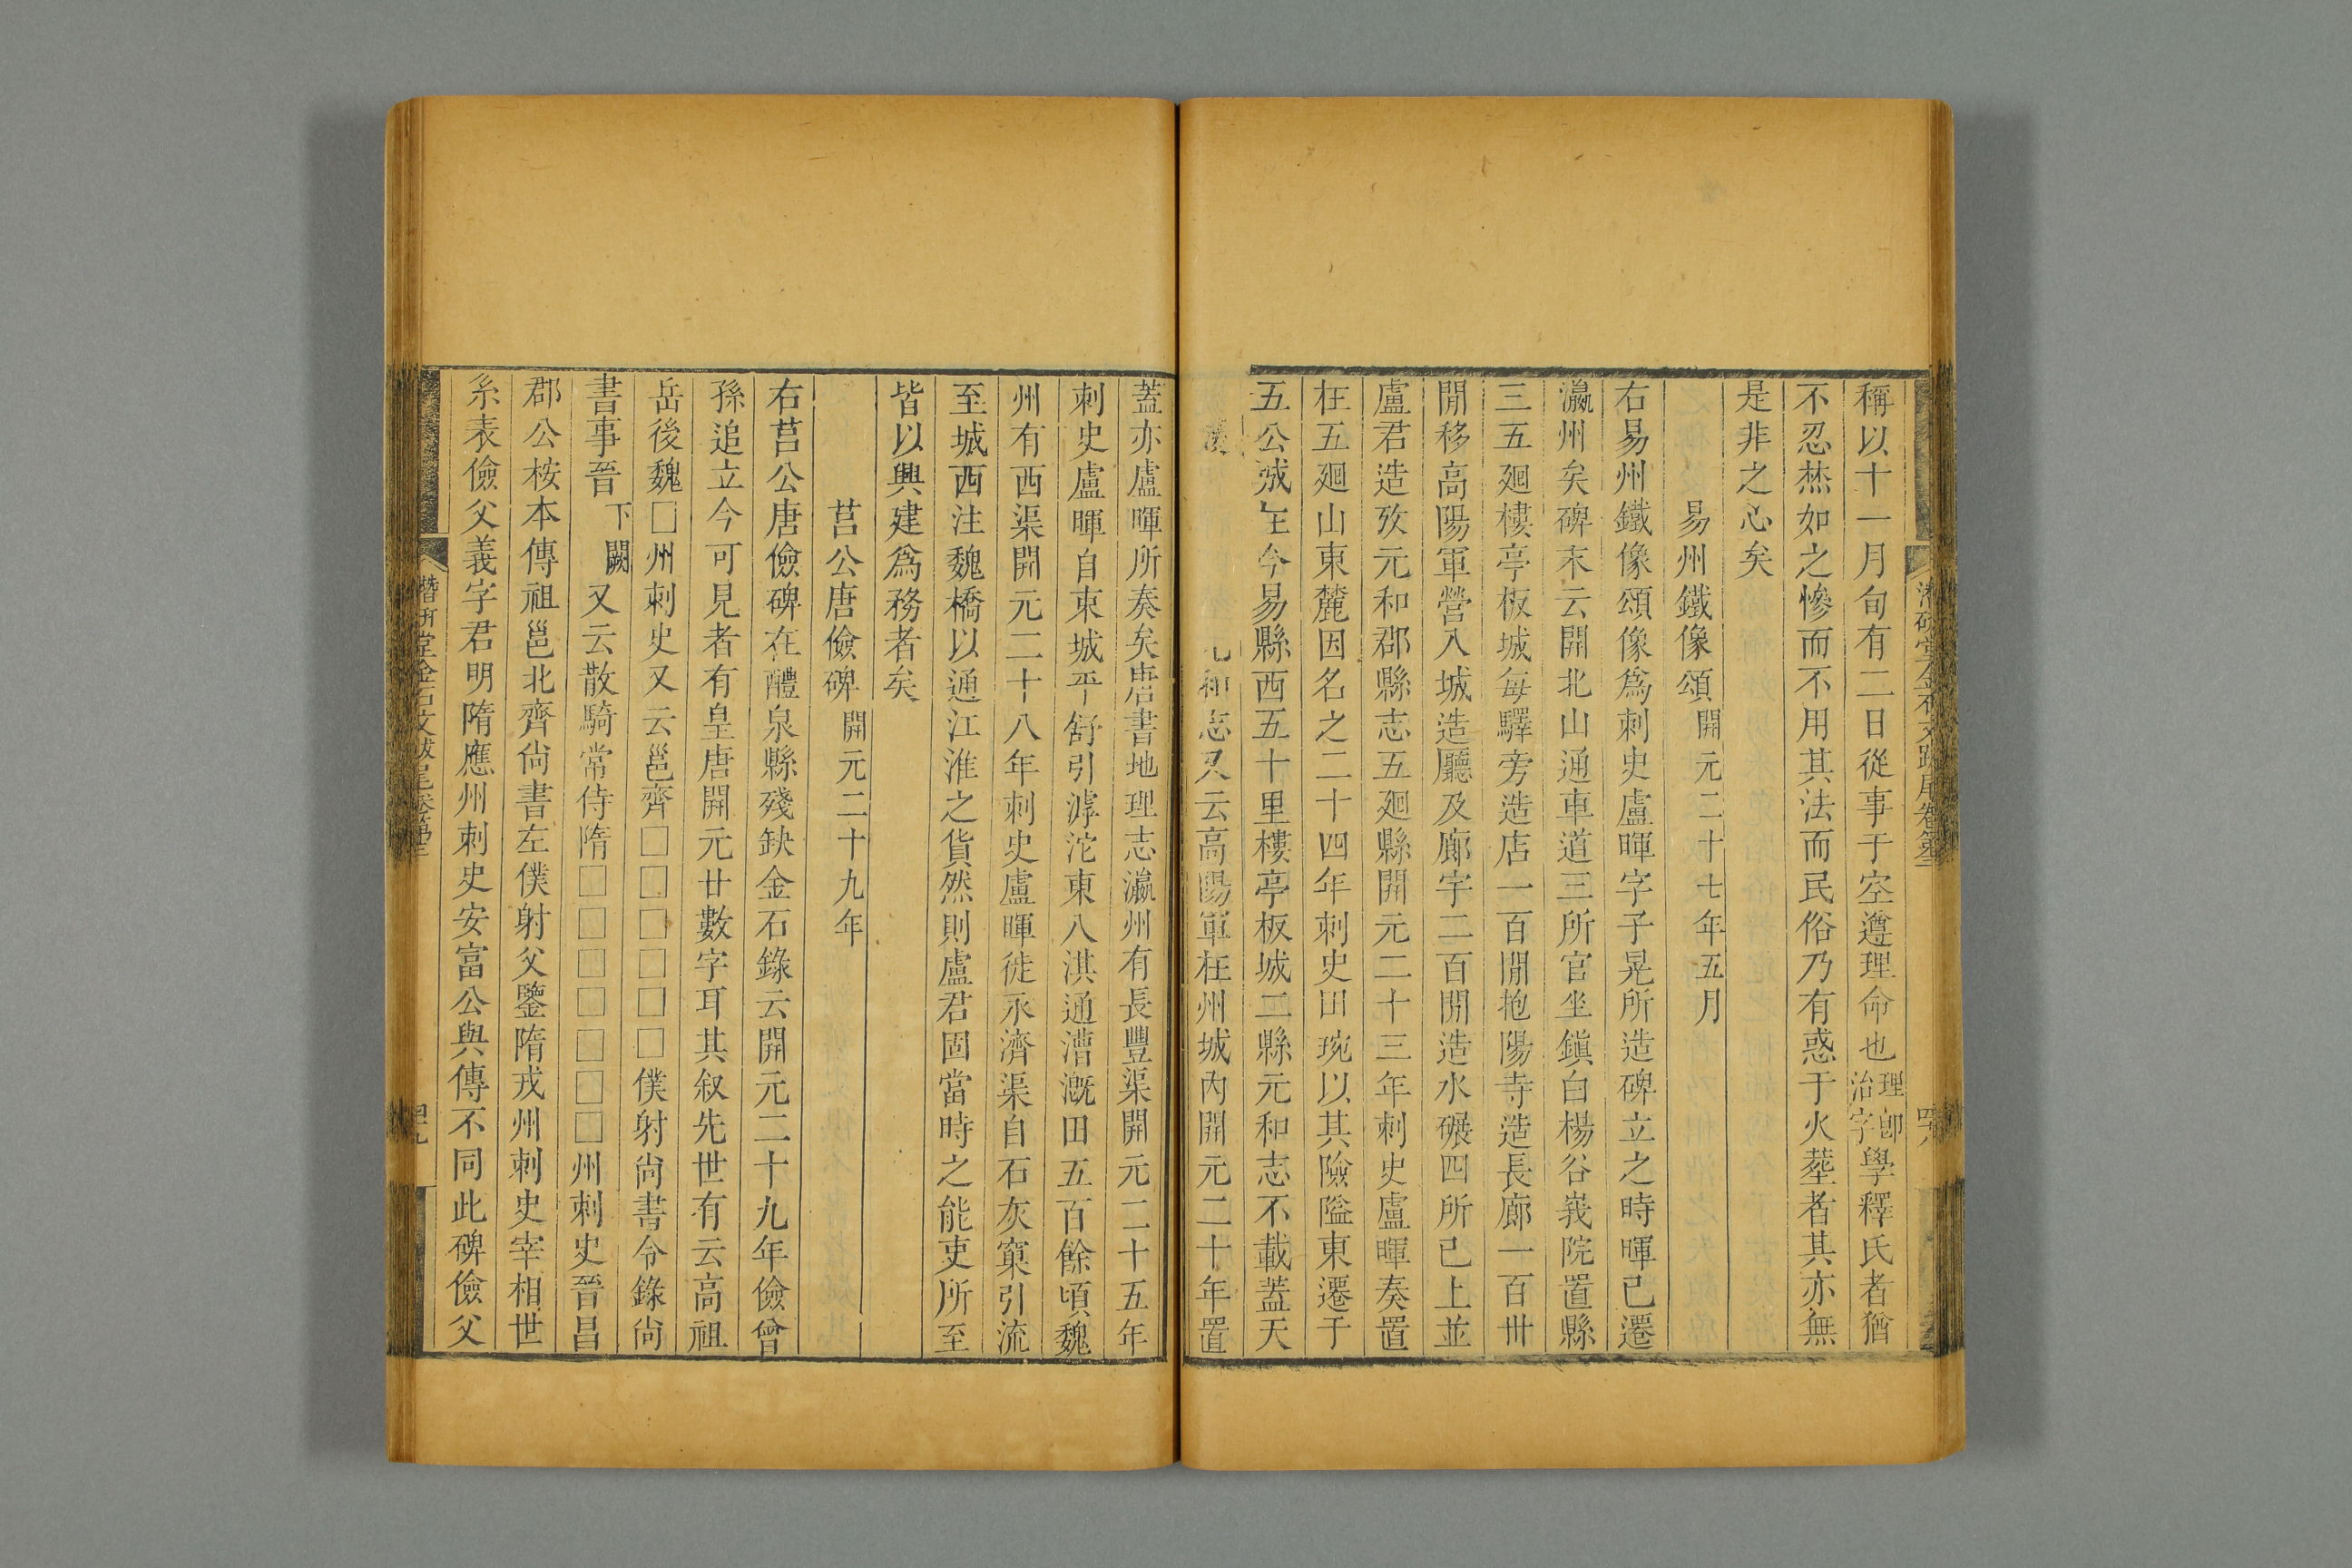 稱以十一月旬有二日從事于空遵理命也理卽治字學釋氏者猶
不忍焚如之慘而不用其法而民俗乃有惑于火塟者其亦無
是非之心矣
易州鐵像頌開元二十七年五月
右易州鐵像頌像爲刺史盧暉字子晃所造碑立之時暉已遷
瀛州矣碑末云開北山通車道三所官坐鎭白楊谷峩院置縣
三五廻樓亭板城每驛旁造店一百閒抱陽寺造長廊一百卅
閒移高陽軍營入城造廳及廊宇二百閒造水碾四所已上並
盧君造攷元和郡縣志五廻縣開元二十三年刺史盧暉奏置
在五廻山東麓因名之二十四年刺史田琬以其險隘東遷于
五公城在今易縣西五十里樓亭板城二縣元和志不載蓋天
志又云高陽軍在州城內開元二十年置
蓋亦盧暉所奏矣唐書地理志瀛州有長豐渠開元二十五年
刺史盧暉自束城平舒引滹沱東入淇通漕漑田五百餘頃魏
州有西渠開元二十八年刺史盧暉徙永濟渠自石灰窠引流
至城西注魏橋以通江淮之貨然則盧君固當時之能吏所至
皆以興建爲務者矣
莒公唐儉碑開元二十九年
右莒公唐儉碑在醴泉縣殘缺金石錄云開元二十九年儉曾
孫追立今可見者有皇唐開元廿數字耳其叙先世有云高祖
岳後魏□州刺史又云邕齊□□□□□□僕射尙書令錄尙
書事晉下闕又云散騎常侍隋□□□□□□□州刺史晉昌
郡公桉本傳祖邕北齊尙書左僕射父鑒隋戎州刺史宰相世
系表儉父義字君明隋應州刺史安富公與傳不同此碑儉父